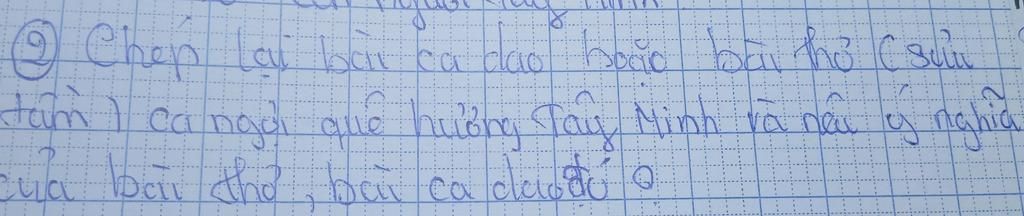 ② Chép lại bài ca dao hoặc bài thơ (sưu
tầm) ca ngợi quê hương Tây Ninh và nêu ý nghĩa
của bài thơ, bài ca dao đó